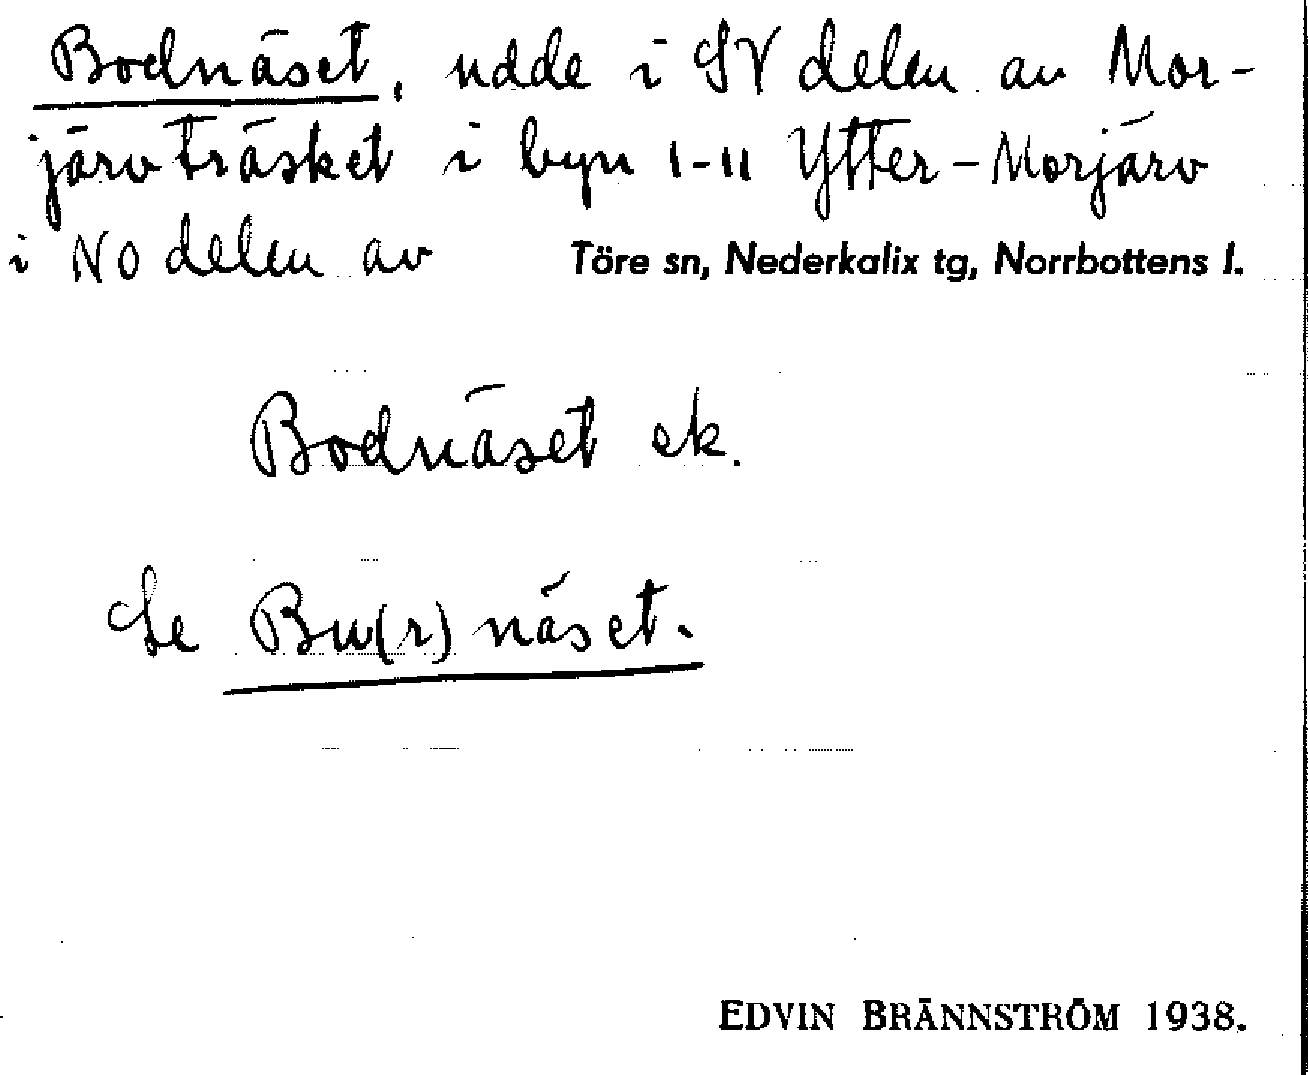 Bodnäset, udde i SV delen av Mor-
järvträsket i byn 1-11 Ytter-Morjärv
i NO delen av Töre sn, Nederkalix tg, Norrbottens l.
Bodnäset ek.
Se Bu(r)näset.
EDVIN BRÄNNSTRÖM 1938.